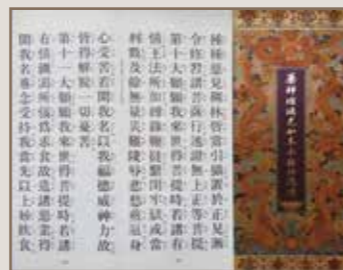 藥師琉璃光如來本願功德經
種種惡見稠林皆當引攝置於正見漸
令修習諸菩薩行速證無上正等菩提
第十大願願我來世得菩提時若諸有
情王法所加縛錄鞭撻繫閉牢獄或當
刑戮及餘無量災難陵辱悲愁煎逼身
心受苦若聞我名以我福德威神力故
皆得解脫一切憂苦
第十一大願願我來世得菩提時若諸
有情饑渴所惱為求食故造諸惡業得
聞我名專念受持我當先以上妙飲食